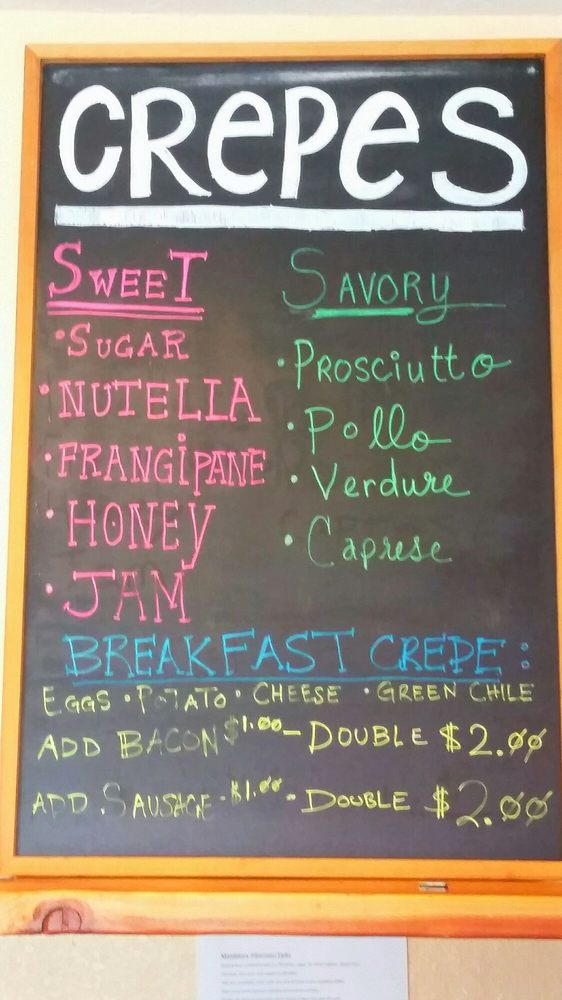 CREPES
SWEET
• SUGAR
• NUTELLA
• FRANGiPANE
• HONEY
• JAM
SAVORY
• Prosciutto
• Pollo
• Verdure
• Caprese
BREAKFAST CREPE:
EGGS • POTATO • CHEESE • GREEN CHILE
ADD BACON $1.00 - DOUBLE $2.00
ADD SAUSAGE - $1.00 - DOUBLE $2.00